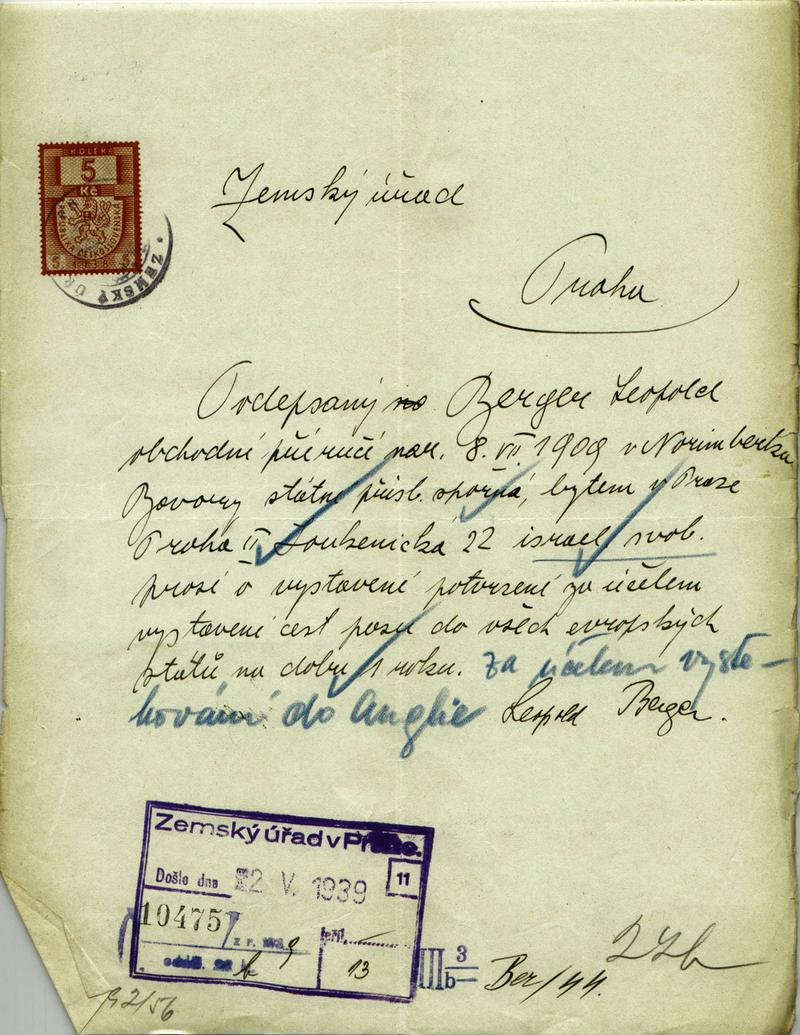 KOLEK
5
Kč
REPUBLIKA ČESKOSLOVENSKÁ
5 5
ZEMSKÝ ÚŘ
Zemský úřad
Praha
Podepsaný Berger Leopold
obchodní příručí nar. 8. VII 1909 v Norimberku
Bavory státní přísl. sporná, bytem v Praze
Praha II Soukenická 22 israel. svob.
prosí o vystavení potvrzení za účelem
vystavení cest pasu do všech evropských
států na dobu 1 roku. za účelem vystě-
hování do Anglie Leopold Berger.
Zemský úřad v Praze.
Došlo dne 2 V. 1939 11
10475/
z r. 9
příl.
odděl. b 13
III 3/b Ber/44.
B2/56